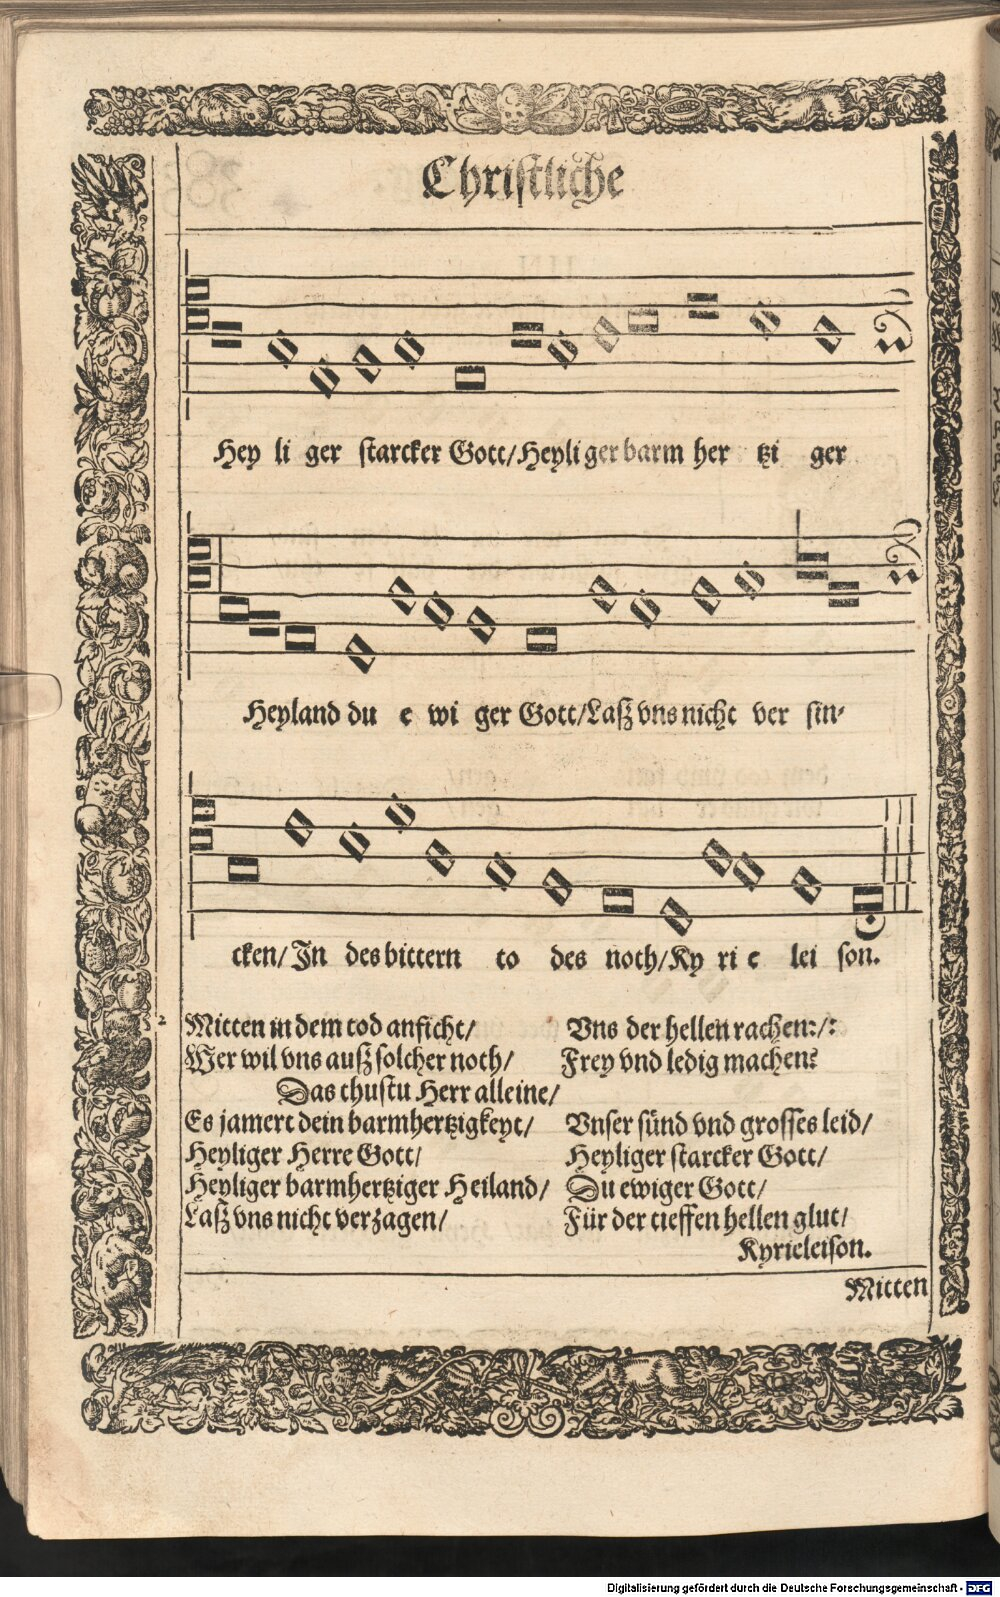 Christliche
Hey li ger starcker Gott/Heyli ger barm her tzi ger
Heyland du e wi ger Gott/Laß vns nicht ver sin-
cken/ In des bittern to des noth/Ky ri e lei son.
2 Mitten in dem tod anficht/ Vns der hellen rachen:/:
Wer wil vns auß solcher noth/ Frey vnd ledig machen?
Das thustu Herr alleine/
Es jamert dein barmhertzigkeyt/ Vnser sünd vnd grosses leid/
Heyliger Herre Gott/ Heyliger starcker Gott/
Heyliger barmhertziger Heiland/ Du ewiger Gott/
Laß vns nicht verzagen/ Für der tieffen hellen glut/
Kyrieleison.
Mitten
Digitalisierung gefördert durch die Deutsche Forschungsgemeinschaft - DFG